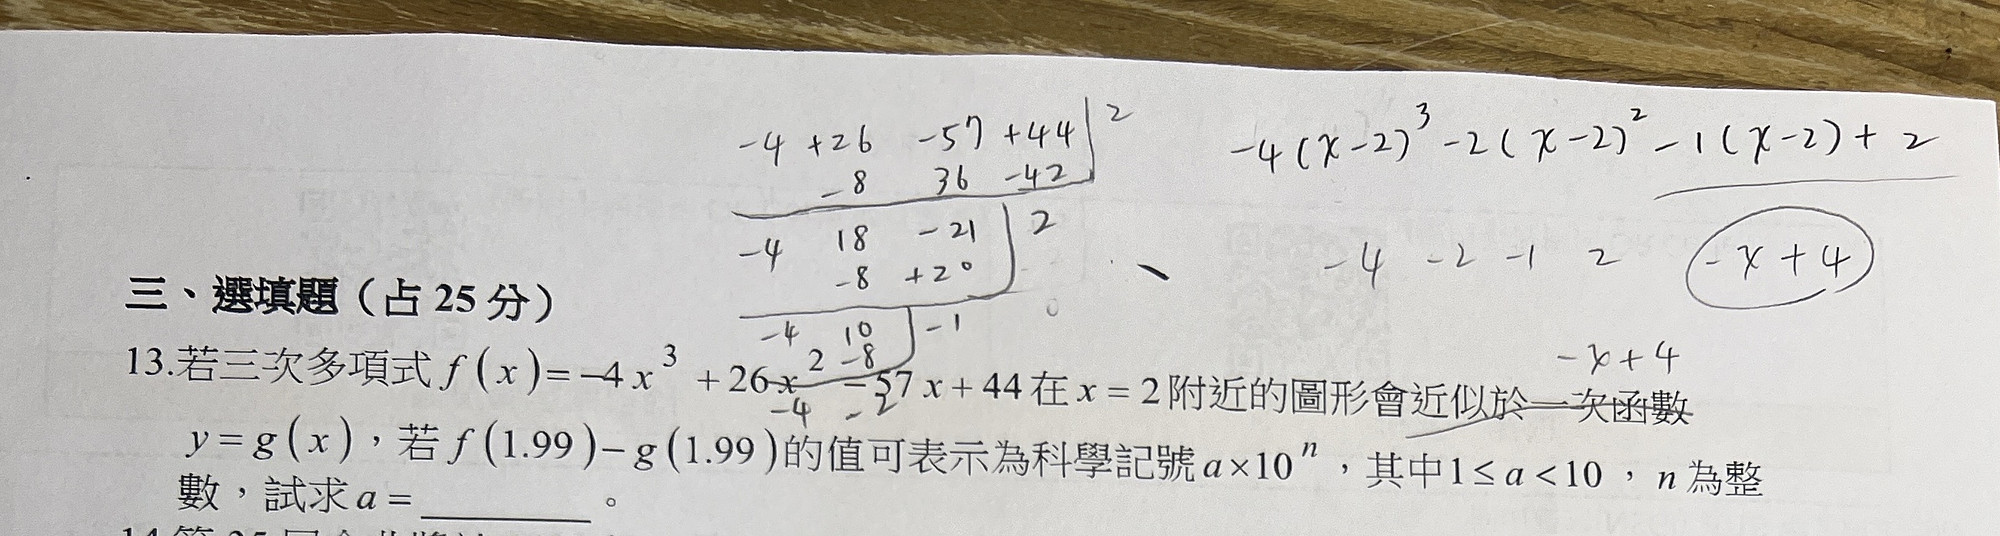 -4 +26 -57 +44 | 2
-8 36 -42
-4 18 -21 | 2
-8 +20
-4 10 | -1
-8
-4 -2
-4(x-2)³-2(x-2)²-1(x-2)+2
-4 -2 -1 2 -x+4
三、選填題（占 25 分）
-x+4
13.若三次多項式 f(x)=-4x³+26x²-57x+44 在 x=2 附近的圖形會近似於一次函數
y=g(x)，若 f(1.99)-g(1.99)的值可表示為科學記號 a×10ⁿ，其中1≤a<10，n 為整
數，試求 a=______。